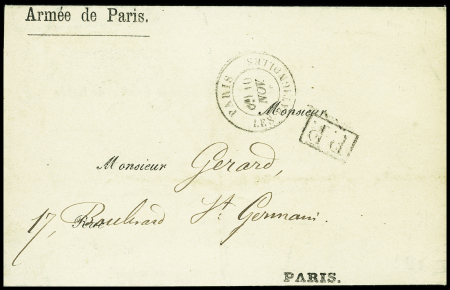 Armée de Paris.
PARIS LES BATIGNOLLES
NOV.
69
Monsieur
P.P.
Monsieur Gerard,
17, Boulevard St. Germain.
PARIS.